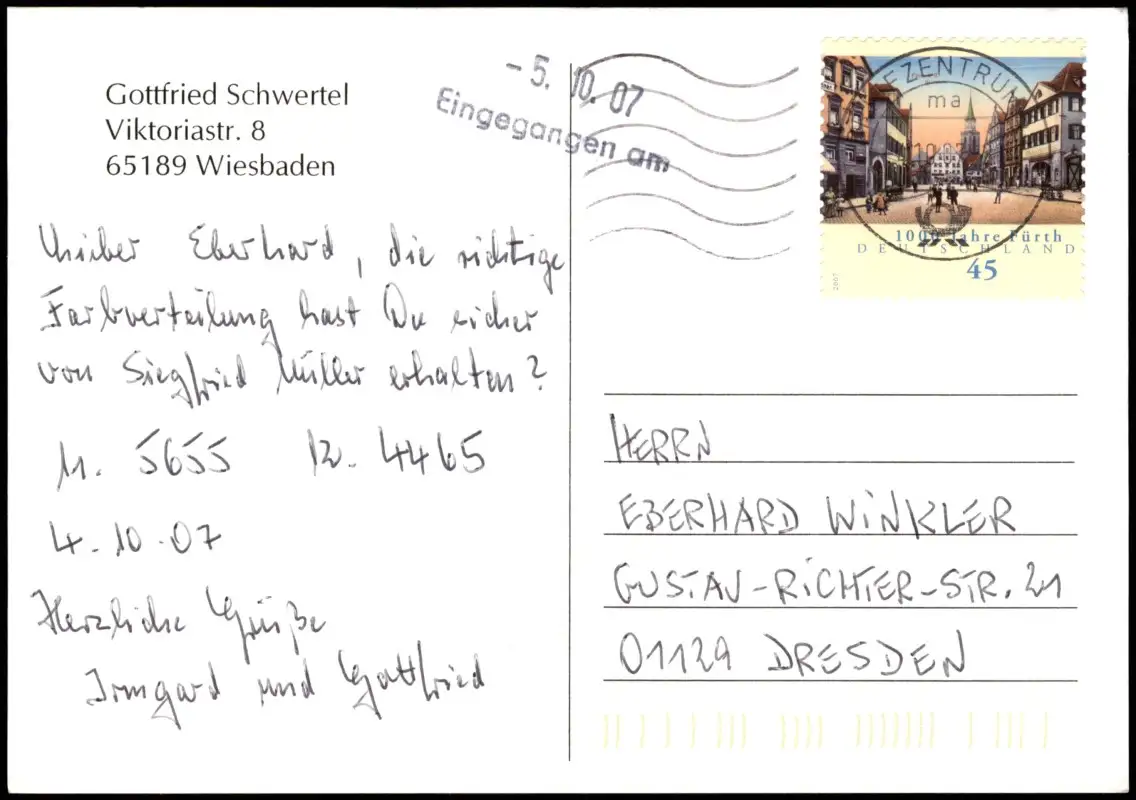 Gottfried Schwertel
Viktoriastr. 8
65189 Wiesbaden
- 5. 10. 07
Eingegangen am
EZENTRUM
ma
1000 Jahre Fürth
DEUTSCHLAND
45
2007
Lieber Eberhard, die richtige
Farbverteilung hast Du sicher
von Siegfried Müller erhalten?
M. 5655 W. 4465
4.10.07
Herzliche Grüße
Irmgard und Gottfried
HERRN
EBERHARD WINKLER
GUSTAV-RICHTER-STR. 21
01129 DRESDEN